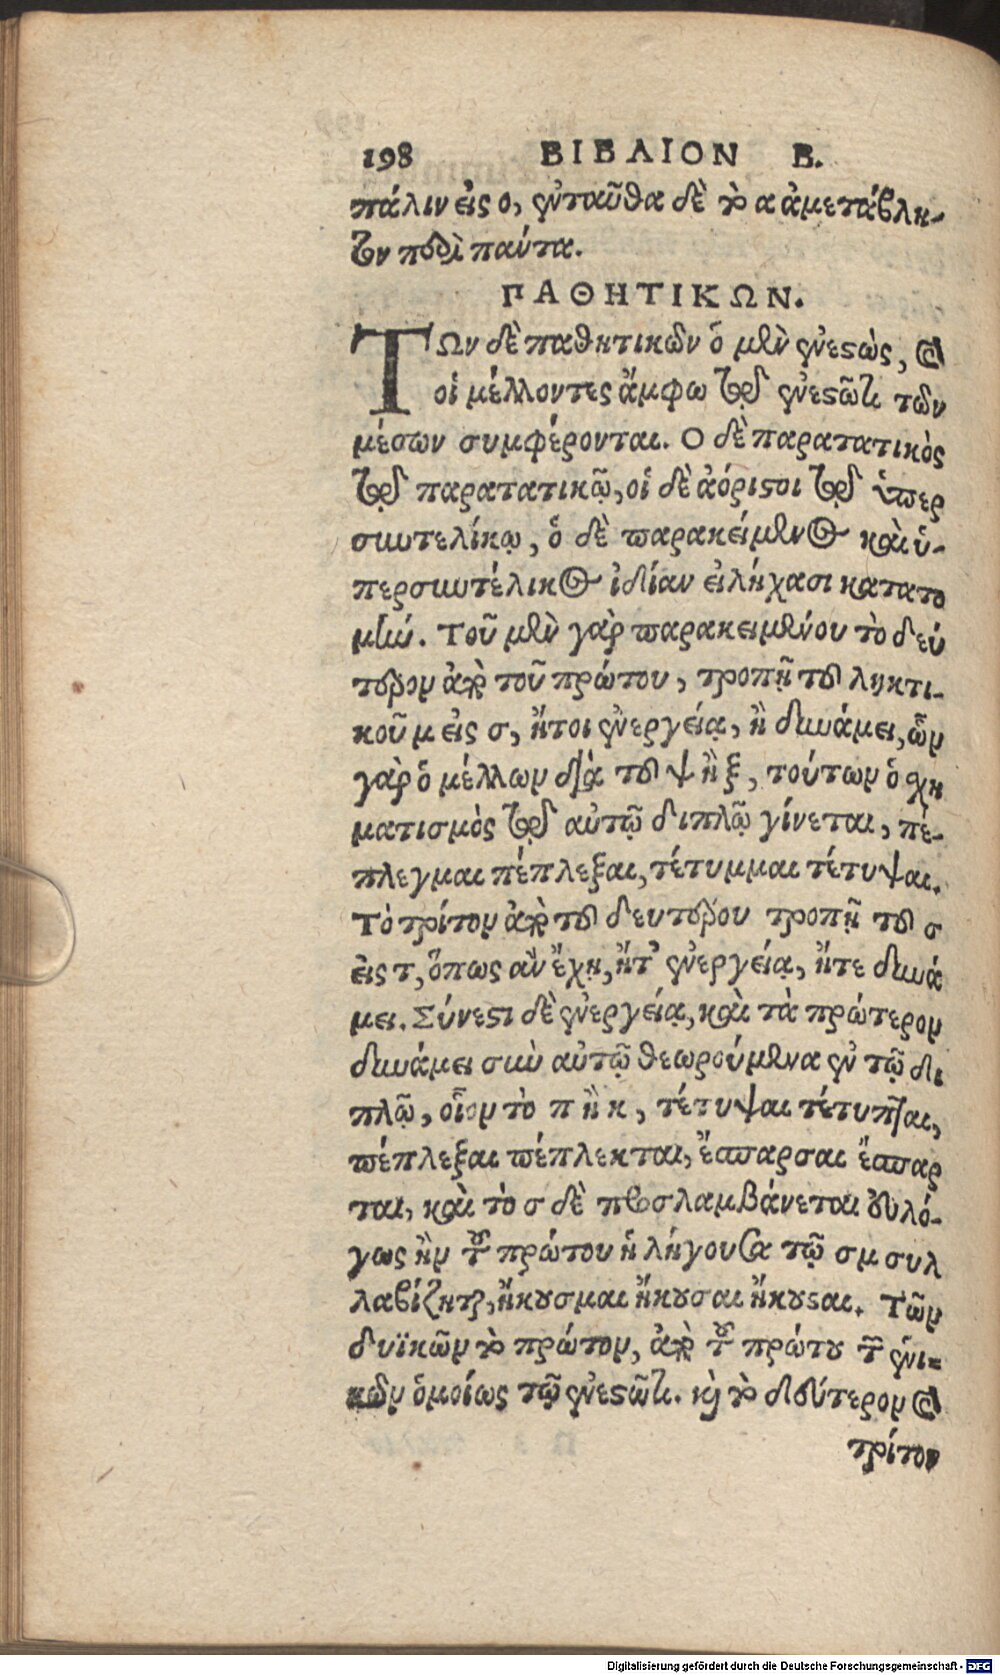 198 ΒΙΒΛΙΟΝ Β.
πάλιν εἰς ο, ἐνταῦθα δὲ τὸ α ἀμετάβλη-
τον πρὸς πάντα.
ΠΑΘΗΤΙΚΩΝ.
ΤΩν δὲ παθητικῶν ὁ μὲν ἐνεστὼς, καὶ
οἱ μέλλοντες ἄμφω τῷ ἐνεστῶτι τῶν
μέσων συμφέρονται. Ο δὲ παρατατικὸς
τῷ παρατατικῷ, οἱ δὲ ἀόριστοι τῷ ὑπερ
συντελίκῳ, ὁ δὲ παρακείμενος καὶ ὑ-
περσυντέλικος ἰδίαν εἰλήχασι κατατο
μήν. Τοῦ μὲν γὰρ παρακειμένου τὸ δεύ
τερον ἀπὸ τοῦ πρώτου, τροπῇ τοῦ ληκτι-
κοῦ μ εἰς σ, ἤτοι ἐνεργείᾳ, ἢ δυνάμει, ὧν
γὰρ ὁ μέλλων διὰ τοῦ ψ ἢ ξ, τούτων ὁ χη
ματισμὸς τῷ αὐτῷ διπλῷ γίνεται, πέ-
πλεγμαι πέπλεξαι, τέτυμμαι τέτυψαι.
Τὸ τρίτον ἀπὸ τοῦ δευτέρου τροπῇ τοῦ σ
εἰς τ, ὅπως ἂν ἔχῃ, ἤτ᾽ ἐνεργείᾳ, ἤτε δυνά
μει. Σύνεστι δὲ ἐνεργείᾳ, καὶ τὰ πρώτερον
δυνάμει σὺν αὐτῷ θεωρούμενα ἐν τῷ δι
πλῷ, οἷον τὸ π ἢ κ, τέτυψαι τέτυπται,
πέπλεξαι πέπλεκται, ἔσπαρσαι ἔσπαρ
ται, καὶ τὸ σ δὲ προσλαμβάνεται εὐλό-
γως ἢν τοῦ πρώτου ἡ λήγουσα τῷ σμ συλ
λαβίζηται, ἤκουσμαι ἤκουσαι ἤκουσται. Τῶν
δυϊκῶν τὸ πρώτον, ἀπὸ τοῦ πρώτου τῶν ἑνι-
κῶν ὁμοίως τῷ ἐνεστῶτι. καὶ τὸ δεύτερον καὶ
τρίτον
Digitalisierung gefördert durch die Deutsche Forschungsgemeinschaft - DFG